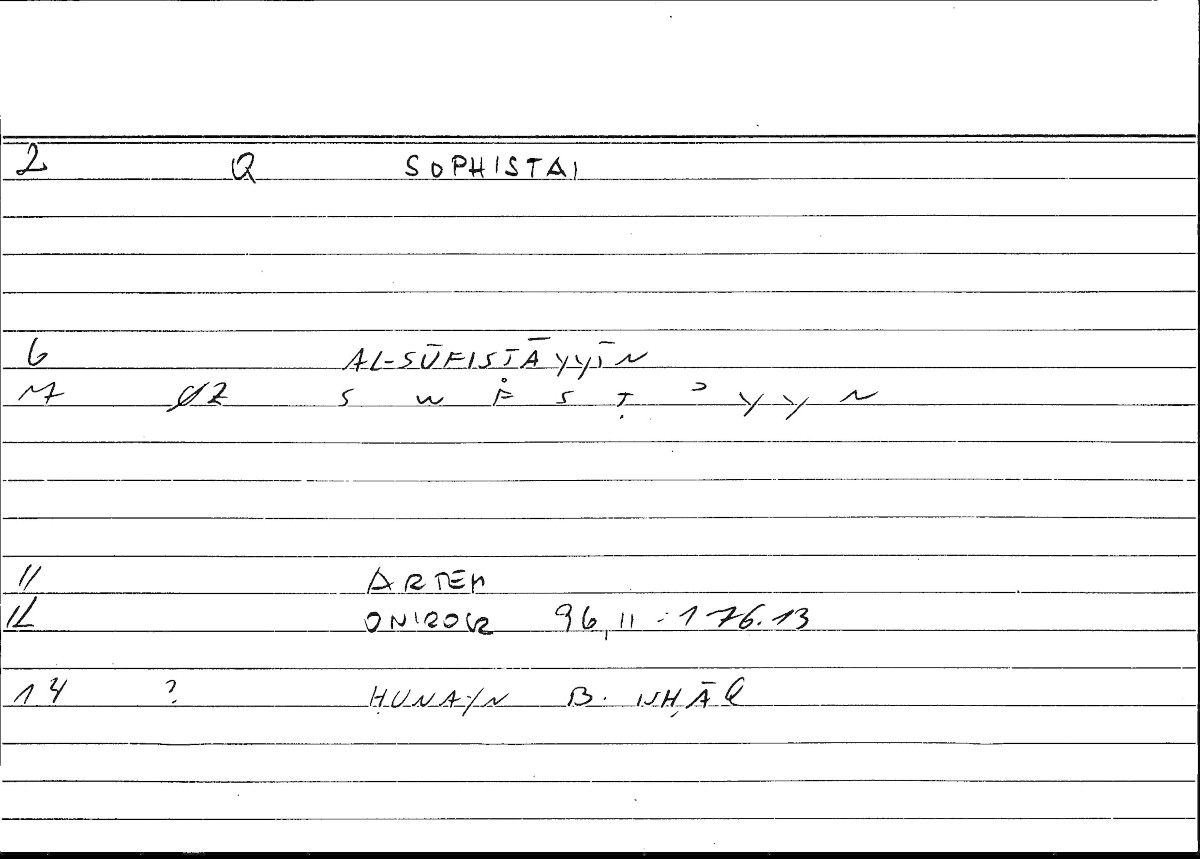 2 Q SOPHISTAI
6 AL-SŪFISṬĀYYĪN
M ØZ S W F S Ṭ ʾ Y Y N
11 ARTEM
12 ONIROCR 96,11 = 176.13
14 ? ḤUNAYN B. ISḤĀQ